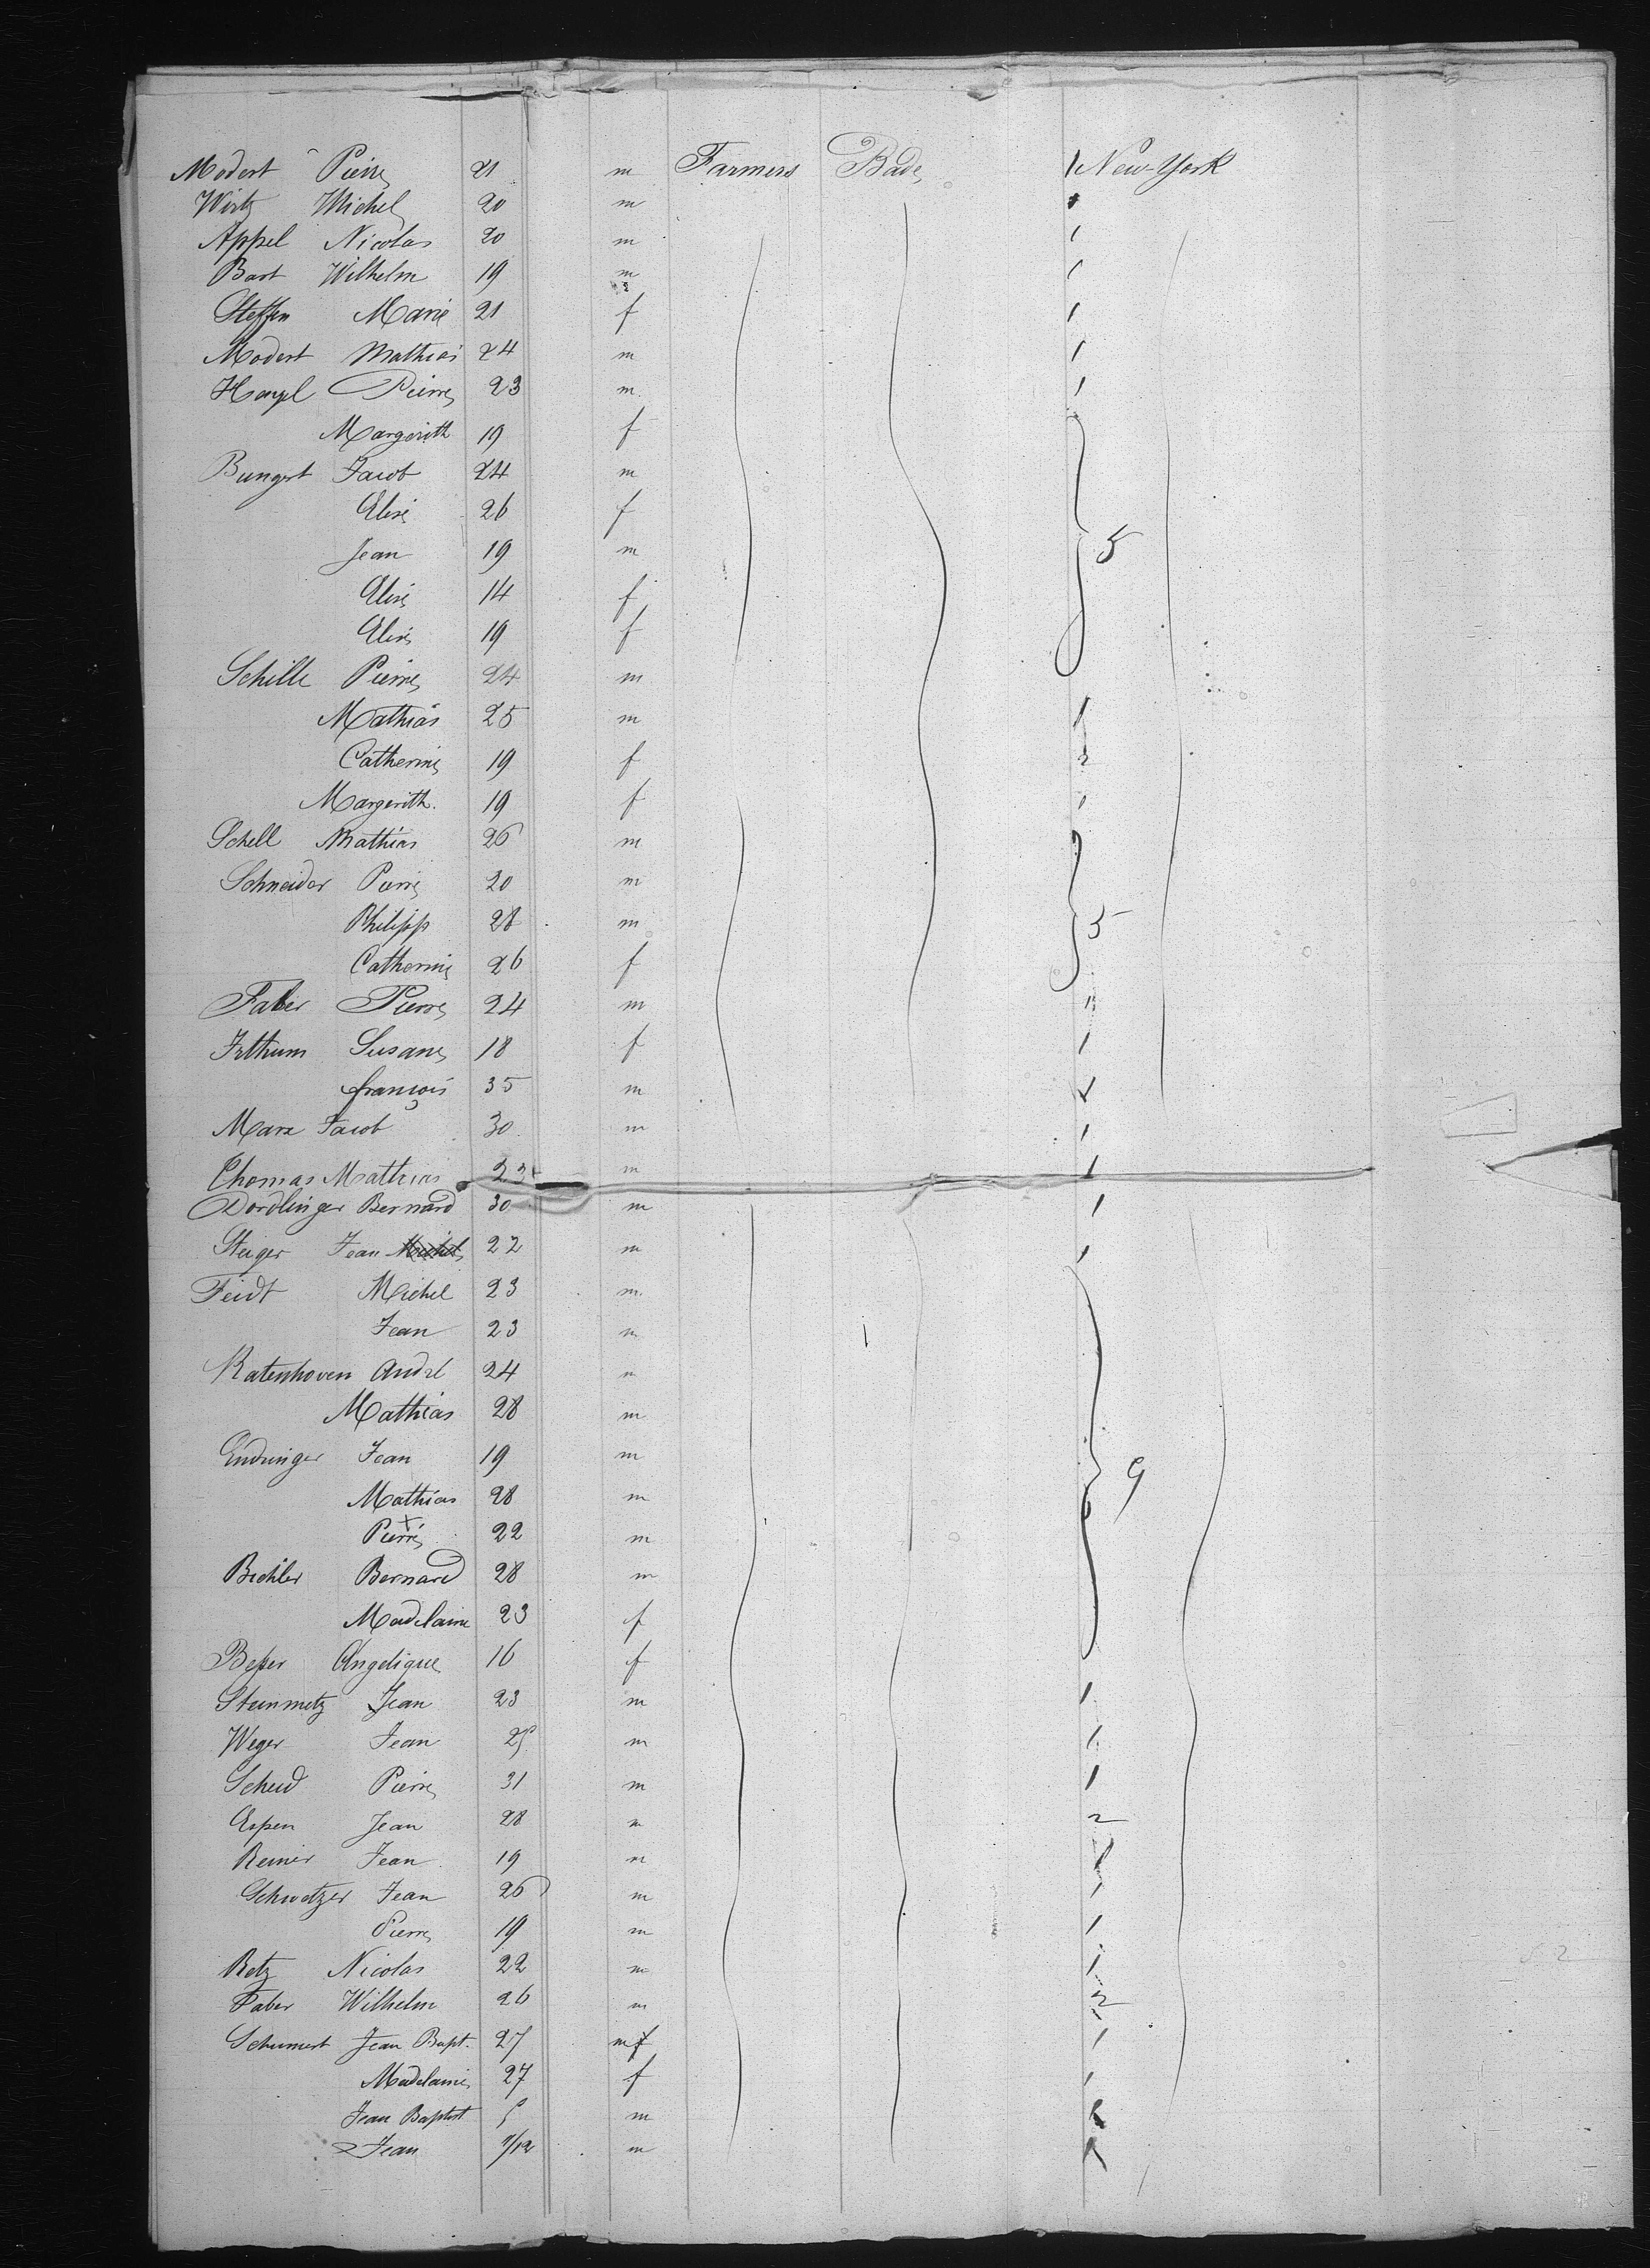 Modert Pierre 21 m Farmers Bade 1 New-York
Wirtz Michel 20 m 1
Appel Nicolas 20 m 1
Bast Wilhelm 19 m 1
Steffen Marie 21 f 1
Modert Mathias 24 m 1
Pierre 23 m 1
Margerith 19 f
Bungert Jacob 24 m
Elise 26 f
Jean 19 m 5
Elise 14 f
Elise 19 f
Schille Pierre 24 m
Mathias 25 m 1
Catherine 19 f 2
Margerith. 19 f 1
Schell Mathias 26 m
Schneider Pierre 20 m
Philipp 28 m 5
Catherine 26 f
Faber Pierre 24 m
Irthum Susane 18 f 1
françois 35 m 1
Marx Jacob 30 m 1
Thomas Mathias 23 m 1
Dordlinger Bernard 30 m 1
Steiger Jean 22 m 1
Feidt Michel 23 m
Jean 23 m
Katenhoven André 24 m
Mathias 28 m
Endringer Jean 19 m
Mathias 28 m 9
Pierre 22 m
Bichler Bernard 28 m
Madelaine 23 f
Besser Angelique 16 f
Steinmetz Jean 23 m 1
Weger Jean 25 m 1
Scheid Pierre 31 m 1
Espen Jean 28 m 2
Reiner Jean 19 m 1
Schwetzer Jean 26 m 1
Pierre 19 m 1
Retz Nicolas 22 m 1
Faber Wilhelm 26 m 2
Schumert Jean Bapt. 27 m 1
Madelaine 27 f 1
Jean Baptist 5 m
Jean m